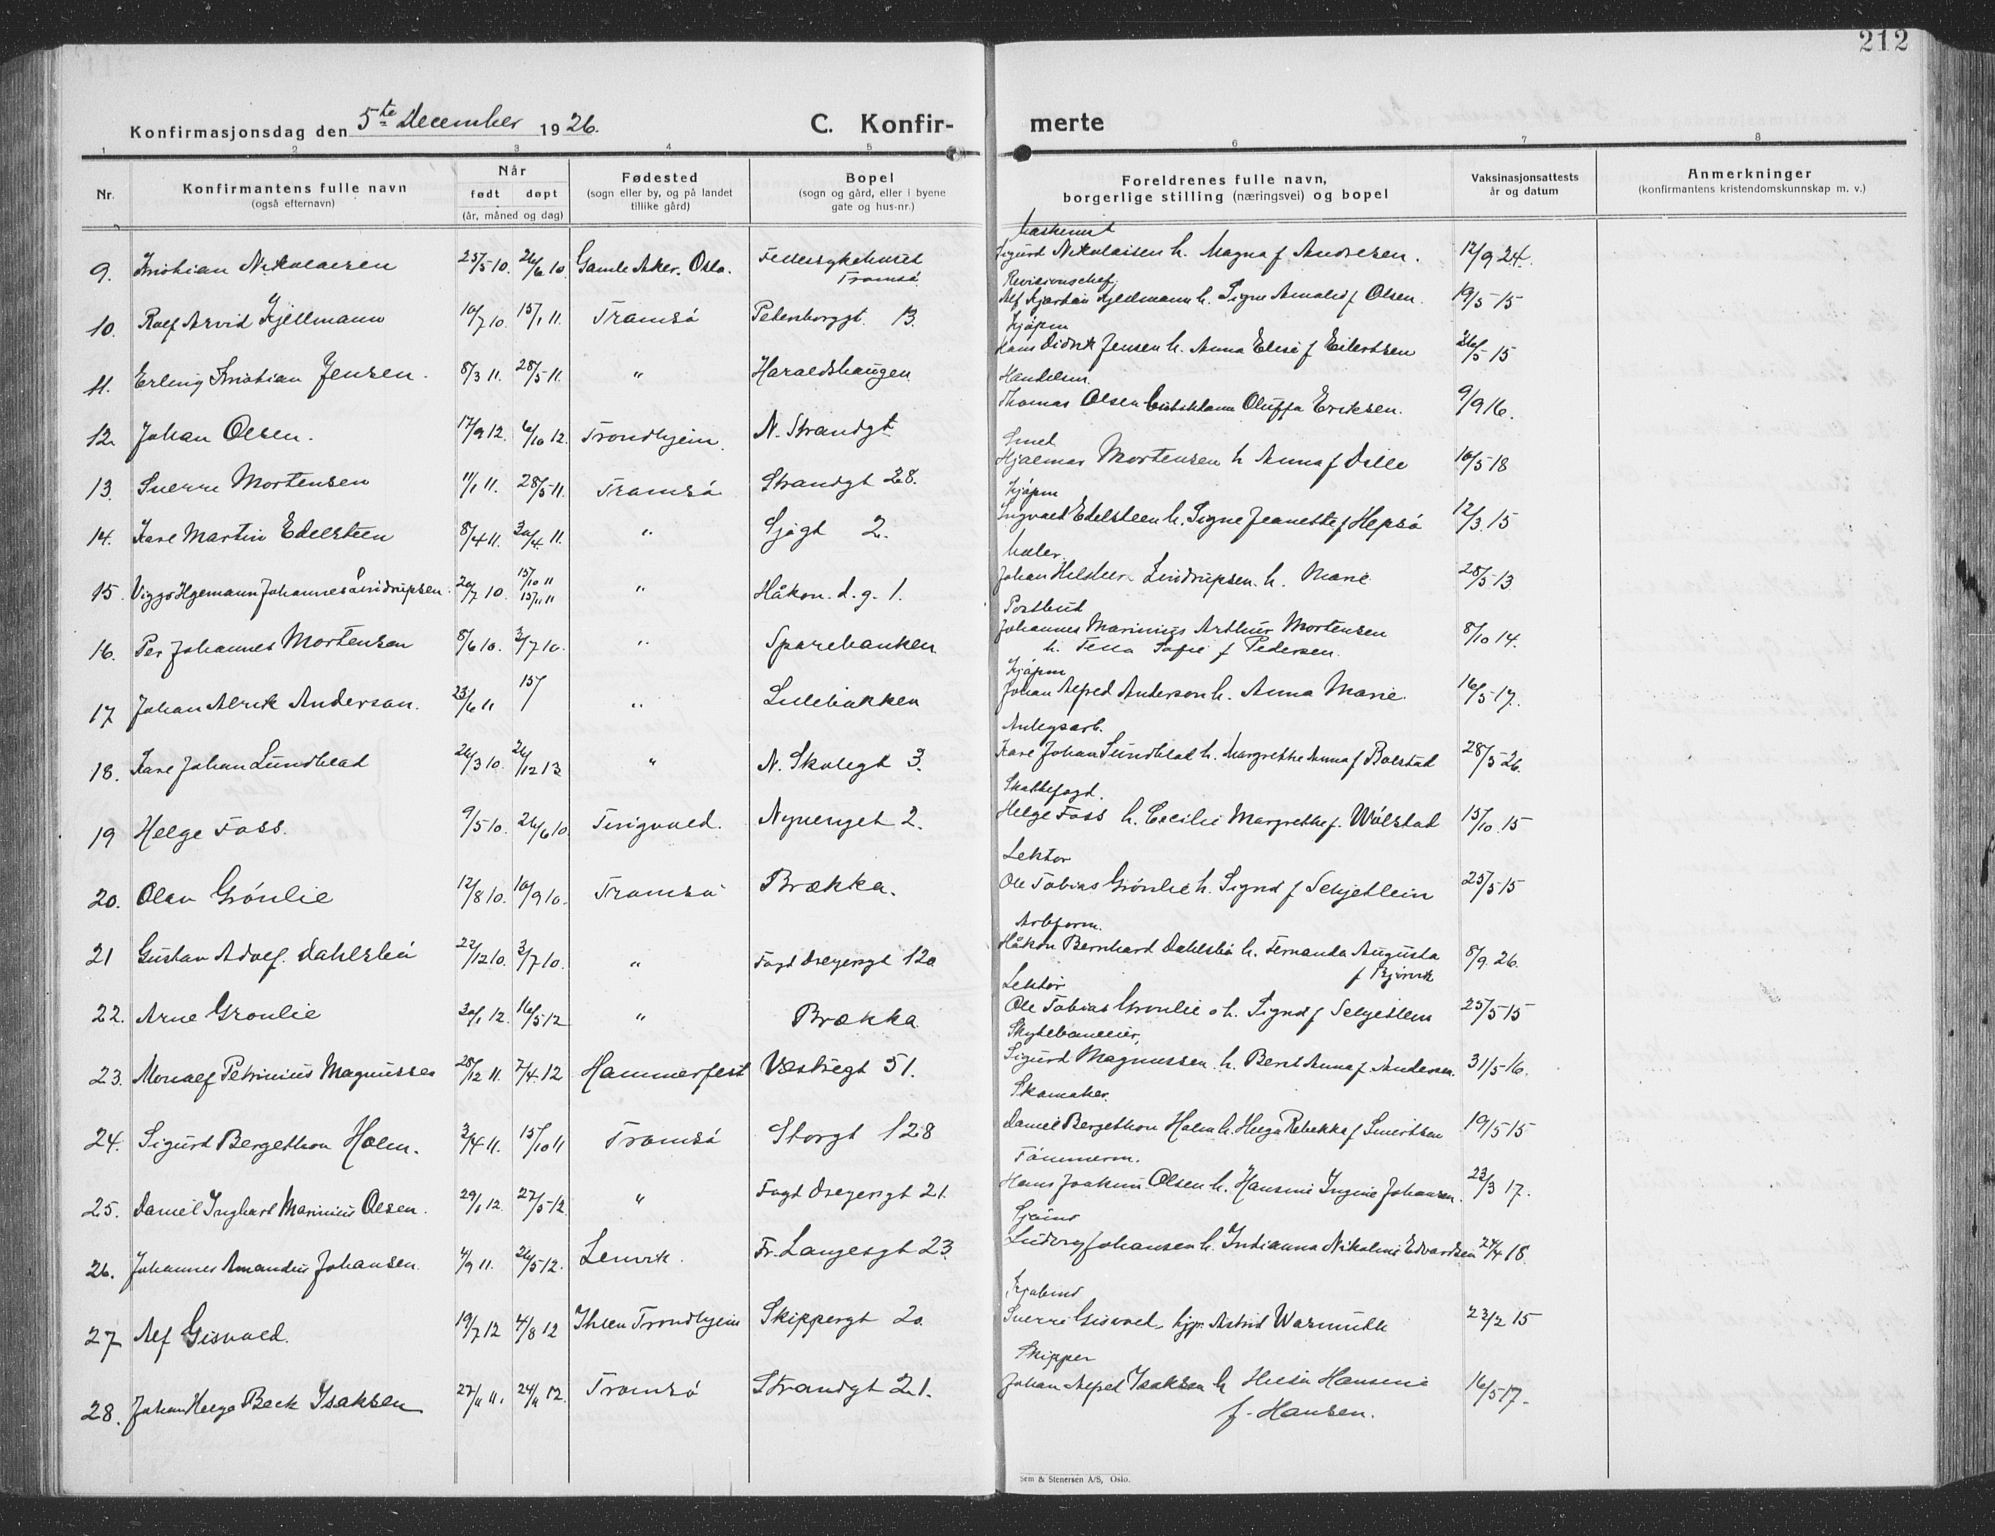 212
Konfirmasjonsdag den 5te December 1926.
C. Konfir- merte
1 2 3 4 5 6 7 8
Nr. Konfirmantens fulle navn (også efternavn)
Når født døpt (år, måned og dag)
Fødested (sogn eller by, og på landet tillike gård)
Bopel (sogn og gård, eller i byene gate og hus-nr.)
Foreldrenes fulle navn, borgerlige stilling (næringsvei) og bopel
Vaksinasjonsattests år og datum
Anmerkninger (konfirmantens kristendomskunnskap m. v.)
Maskinist
9. Kristian Nikolaisen 25/5 10. 26/6 10. Gamle Aker. Oslo. Fellessykehuset Tromsø Sigurd Nikolaisen h. Magna f Andresen. 12/9 24.
Revisionschef
10. Rolf Arvid Kjellmann 10/7 10. 15/1 11. Tromsø Petersborggt. 13. Alf Kjartan Kjellmann h. Signe Amalie f Olsen. 19/5 15
Kjøpm
11. Erling Kristian Jensen. 8/3 11. 28/5 11. " Haraldshaugen Hans Didrik Jensen h. Anna Elise f Eilertsen 26/5 15
Handelsm.
12. Johan Olsen. 17/9 12. 6/10 12. Trondhjem. N. Strandgt Thomas Olsen Oluffa Eriksen. 9/9 16.
Smed
13. Sverre Mortensen 11/1 11. 28/5 11. Tromsø Strandgt 28. Hjalmar Mortensen h Anna f Dille 10/5 18
Kjøpm
14. Kare Martin Edelsteen 8/4 11. 30/4 11. " Sjøgt 2. Ingvald Edelsteen h. Signe Jeanette f Hepsø 12/3. 15
Maler.
15. Viggo Hgemann Johannes Lindrupsen. 20/7 10. 15/10 11 15/11 11 " Håkon. d. g. 1. Johan Lindrupsen. h. Marie 28/5 13
Postbud
16. Per Johannes Mortensen 8/6 10. 3/7 10. " Sparebanken Johannes Marinius Arthur Mortensen 8/10 14.
h. Tella Sofie f Pedersen.
Kjøpm
17 Johan Alrik Anderson. 23/6 11 15/ " Lillebakken Johan Alfred Anderson h. Anna Marie 16/5 17.
Anlegsarb.
18. Kare Johan Lundblad 26/3 10. 26/12 13 " N. Skolegt 3. Kare Johan Lundblad h. Margrethe Anna f Bolstad 28/5 26.
Skattefogd.
19 Helge Foss. 9/5 10. 26/6 10 Tingvold. Nyvenget 2. Helge Foss h. Cecilie Margrethe f. Wølstad 15/10. 15
Lektor
20. Olav Grønlie 12/8 10. 10/9 10. Tromsø Brækka. Ole Tobias Grønlie h. Signe f Selzetlein 25/5 15
Arbform.
21 Gustav Adolf. Dahlsbø 22/12 10. 3/7 10. " Fogd Dreyersgt 12a Håkon Bernhard Dahlsbø h. Fernanda Augusta 8/9. 26.
f Bjørvik
Lektor
22. Arne Gronlie 30/1 12. 16/5 12 " Brækka Ole Tobias Gronlie o h. Signe f Selzetlein 25/5 15
Skytebaneeier,
23. Monalf Petrinius Magnussen 28/12 11. 7/4 12 Hammerfest Vestregt 51. Sigurd Magnussen h. Beret Anna f Andersen. 31/5 16.
Skomaker.
24. Sigurd Bergethon Holm. 3/4 11. 15/10 11 Tromsø Storgt 128 Daniel Bergethon Holm h. Helga Rebekka f Sivertsen 19/5 15
Tømmerm.
25. Daniel Inghart Marinius Olsen. 29/1 12. 27/5 12. " Fogd Dreyersgt 21. Hans Joakim Olsen h. Hansine Ingine Johansen. 23/3 17.
Sjømd
26. Johannes Amandus Johansen. 4/9 11. 26/5 12. Lenvik. Fr. Langesgt 23. Ludvig Johansen h. Indianna Nikoline Edvardsen 24/4 18.
27 Alf Gisvold. 19/7 12 4/8 12 Ihlen Trondhjem Skippergt 20. Sverre Gisvold. Astrid Warmuth 23/2 15
Skipper
28. Johan Helge Beck Isaksen 27/11 11. 24/11 12. Tromsø Strandgt 21. Johan Alfred Isaksen h Hansine 16/5 17.
f. Hansen.
Sem & Stenersen A/S, Oslo.